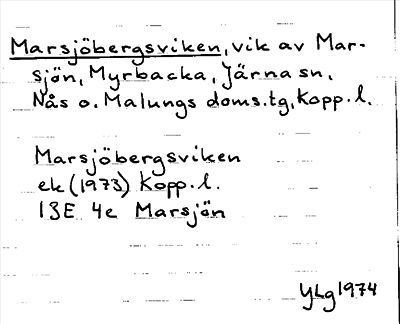 Marsjöbergsviken, vik av Mar-
sjön, Myrbacka, Järna sn,
Nås o. Malungs doms.tg, Kopp. l.
Marsjöbergsviken
ek (1973) Kopp. l.
13E 4e Marsjön
YLg 1974